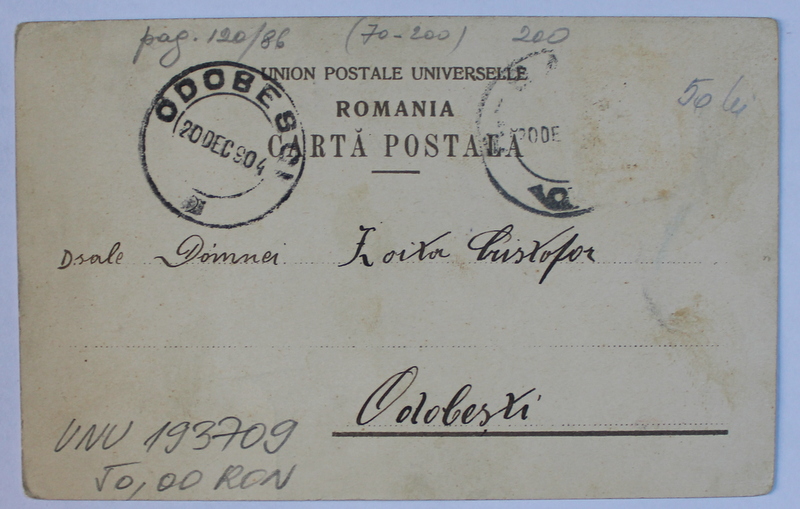 pag. 120/86 (70-200) 200
UNION POSTALE UNIVERSELLE
ROMANIA
CARTĂ POSTALĂ
50 lei
ODOBESCI
20 DEC 904
20 DE
Dsale Domnei Zoița Cristofor
Odobești
UNU 193709
50,00 RON